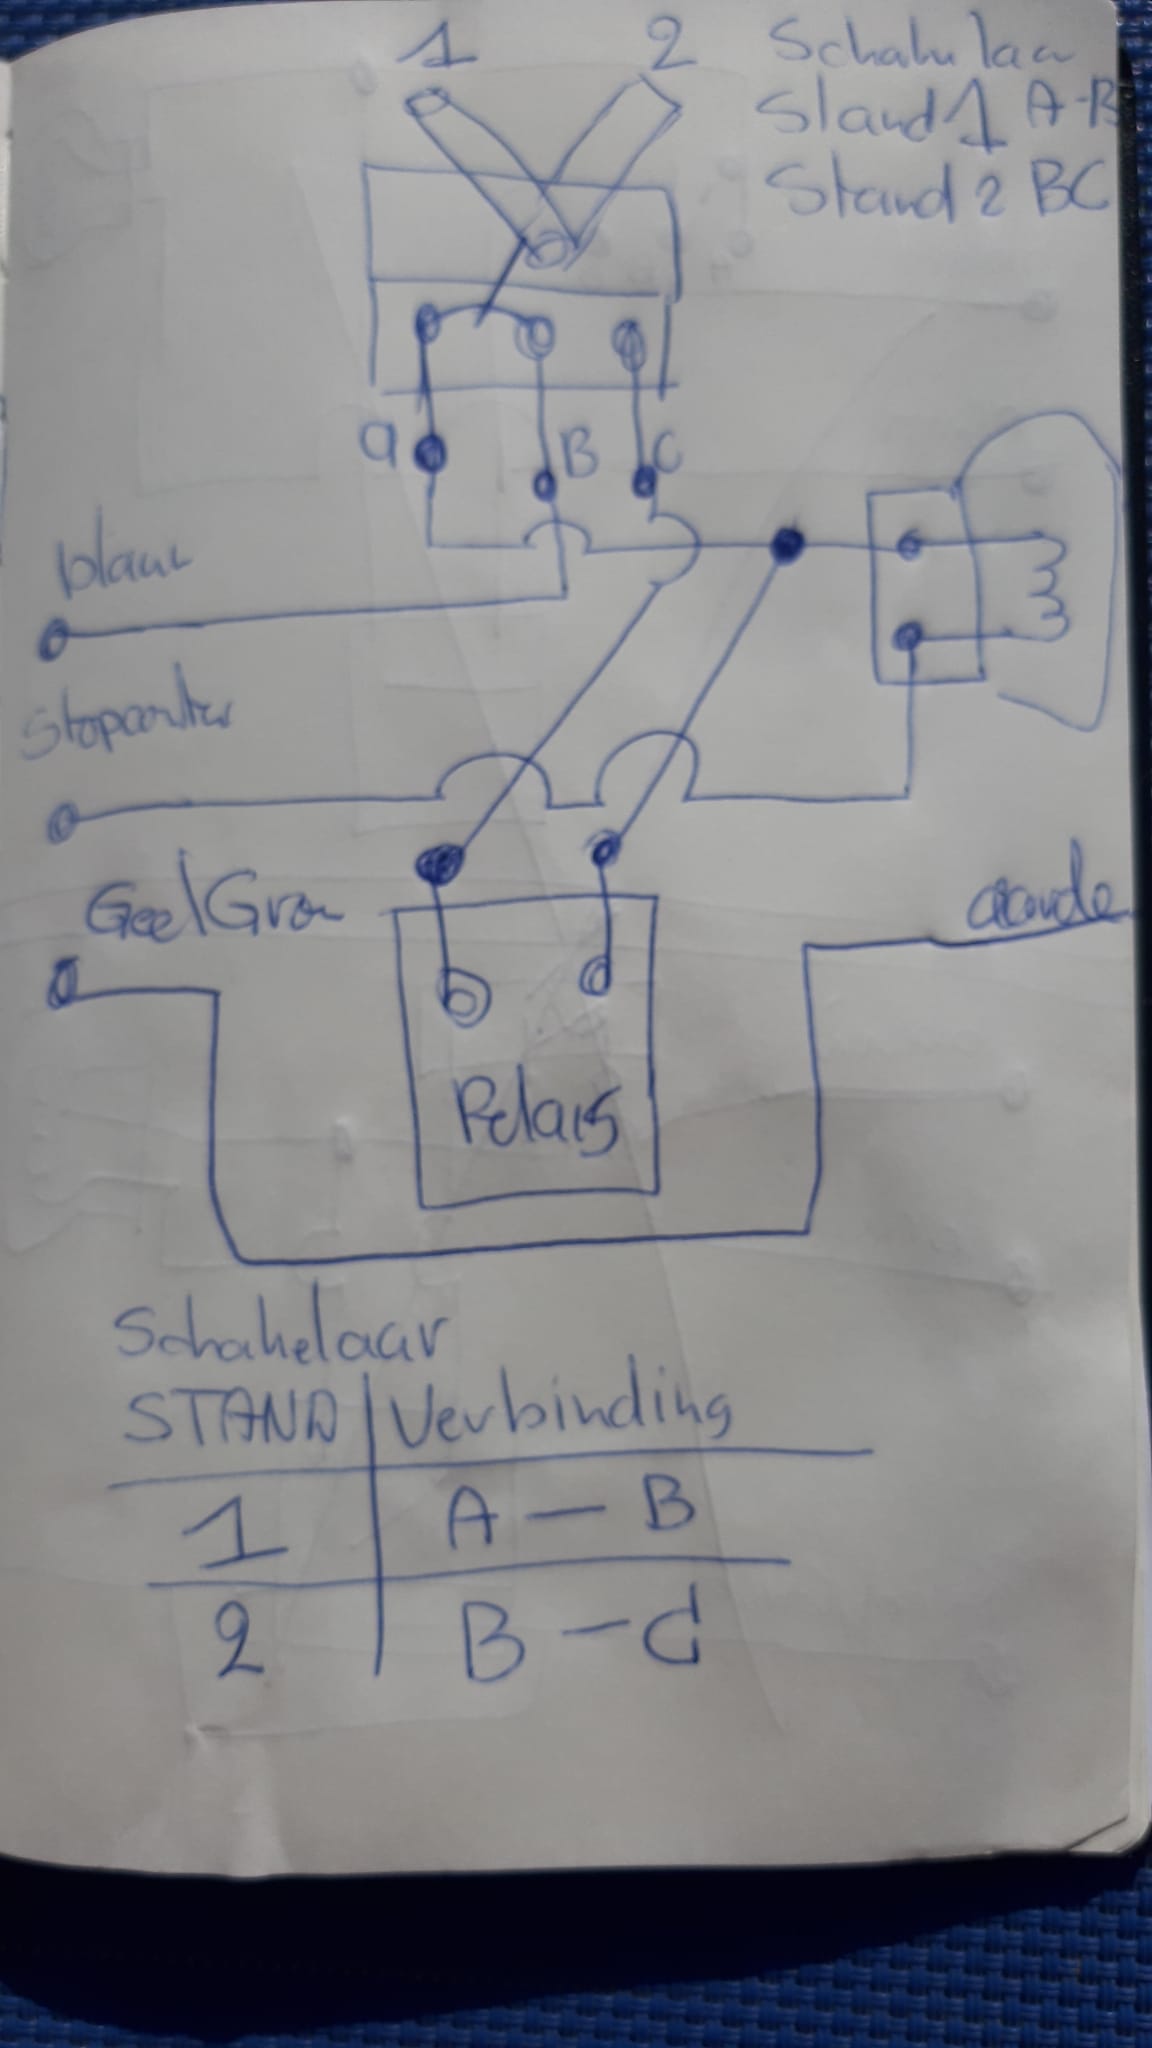 1 2
Schakelaar
Stand 1 A-B
Stand 2 BC
a B C
blauw
Stopconter
Geel Groen
aarde
Relais
Schakelaar
STAND Verbinding
1 A — B
2 B — C